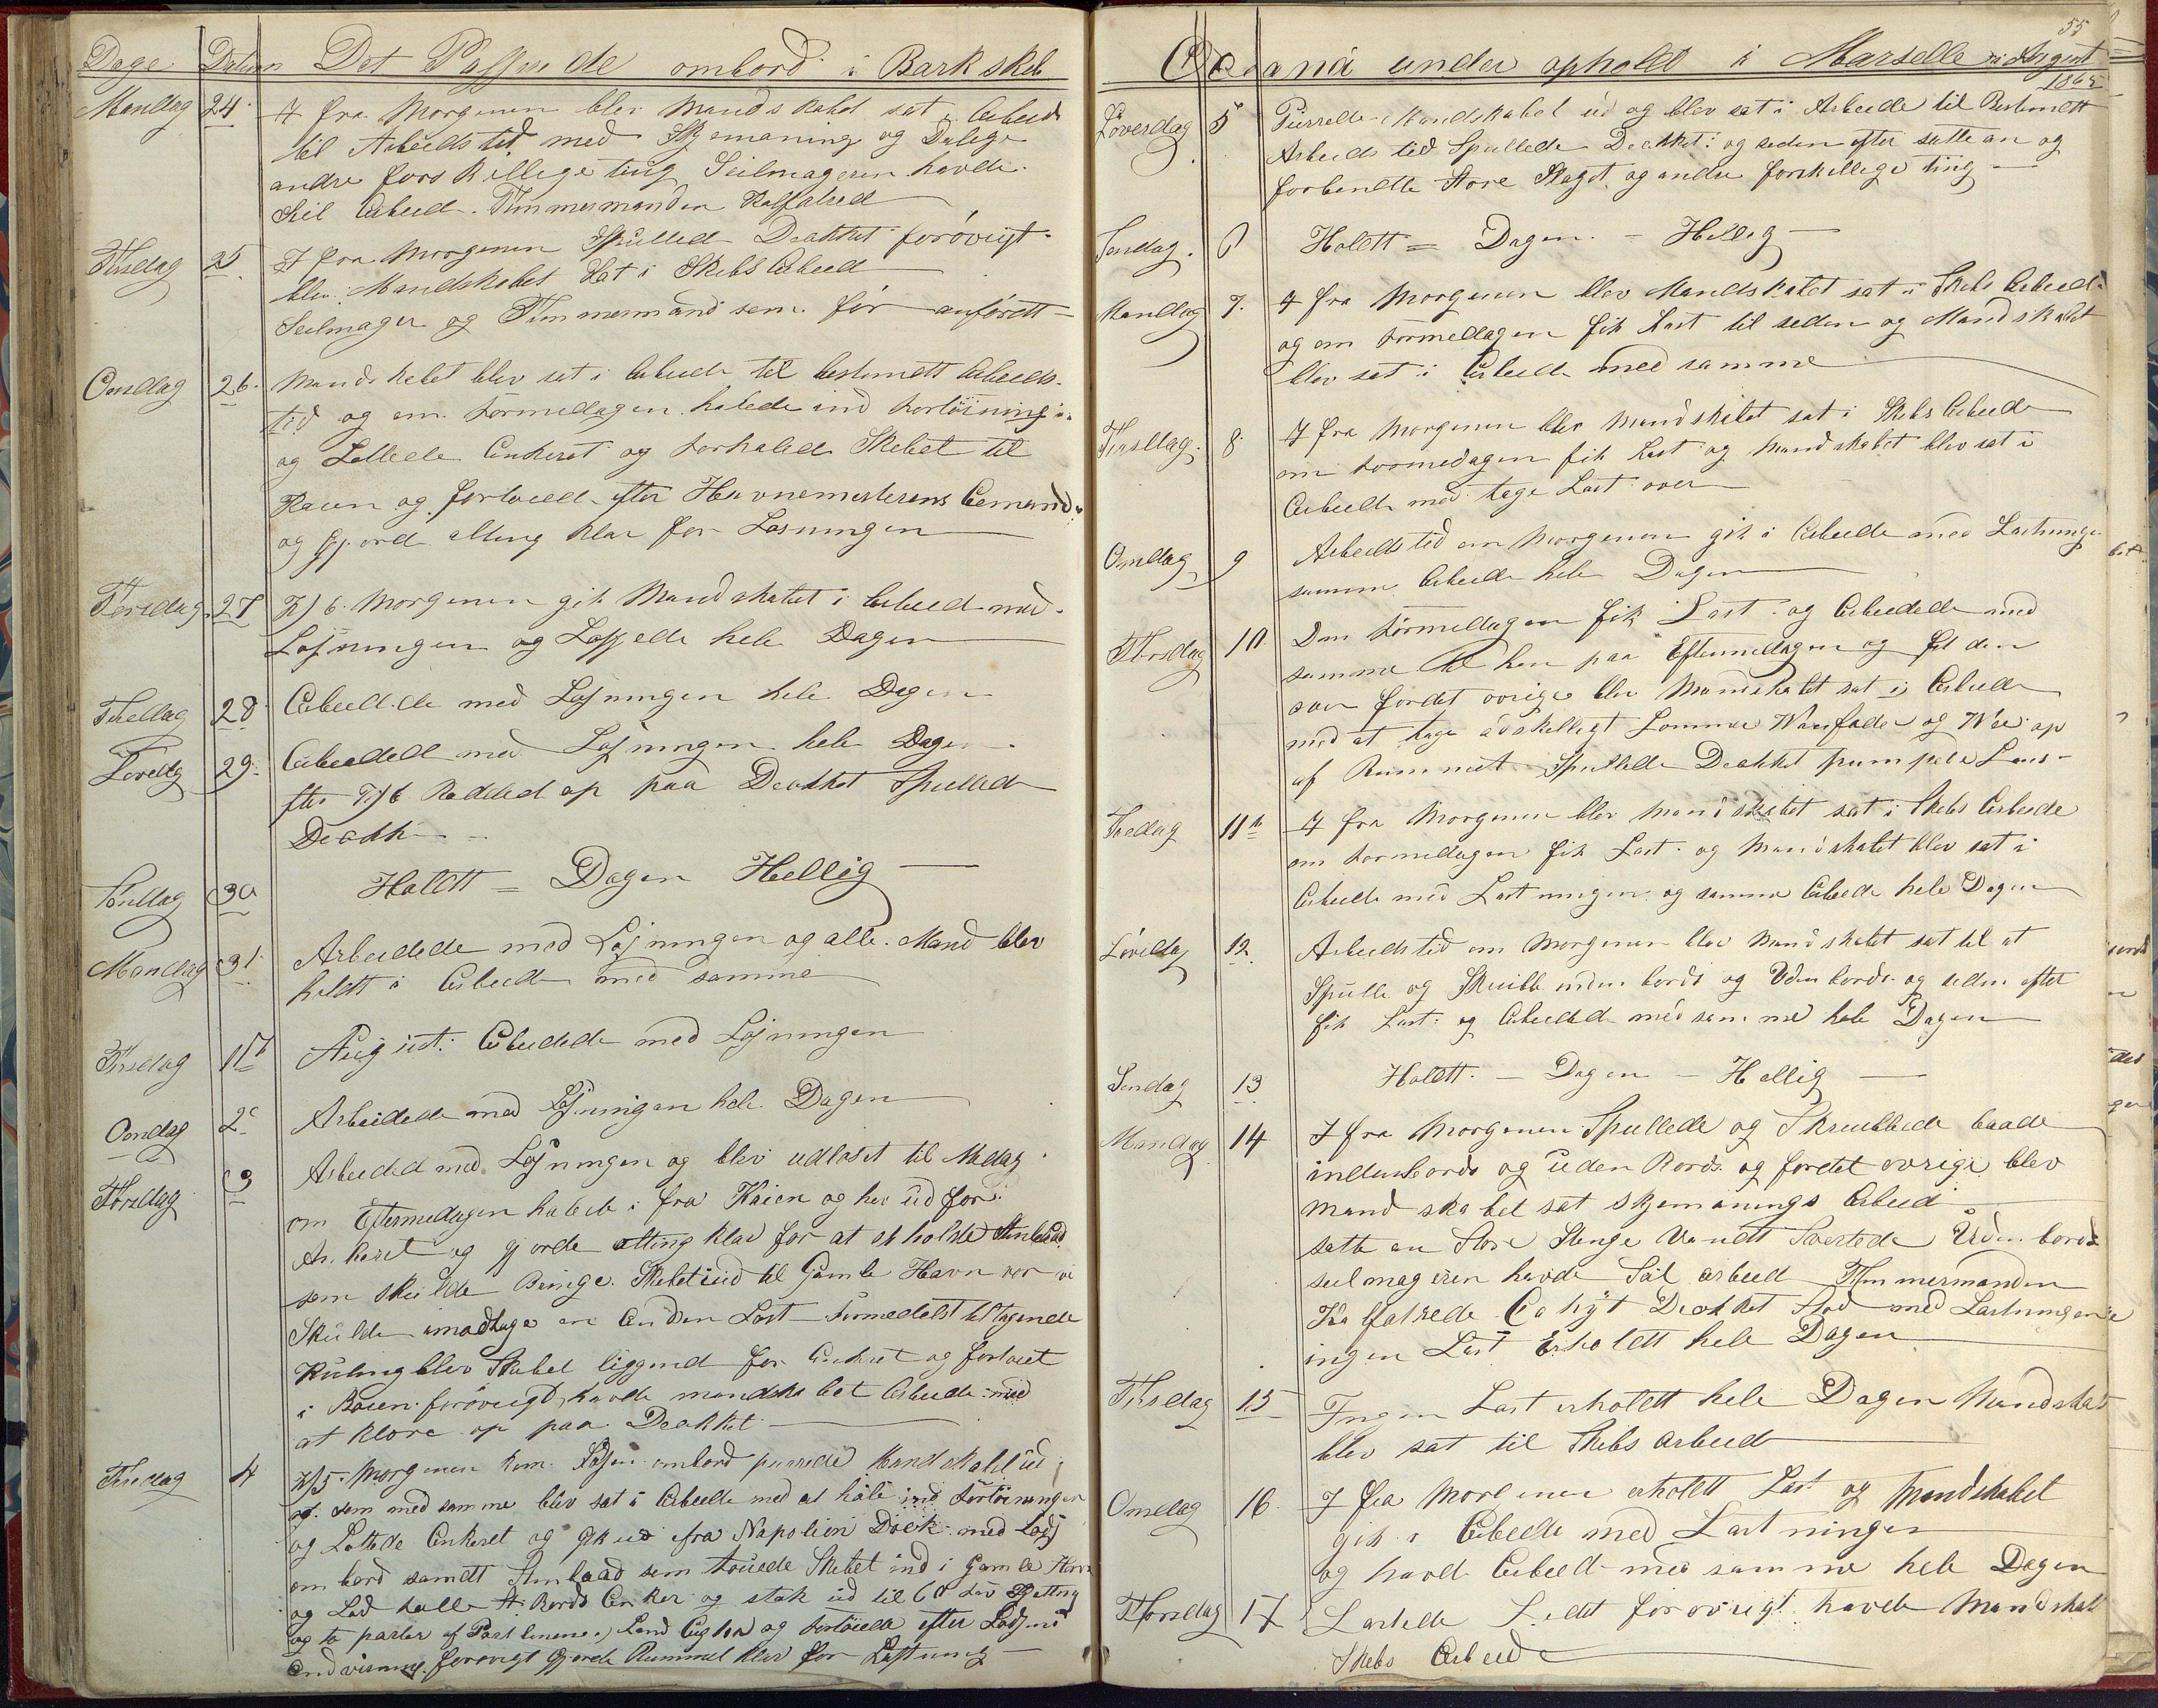 Dage Datum Det Passerede ombord i Barkskib
Mandag 24. I fra Morgenen blev Mandskabet sat i Arbeid
til Arbeidstid med Skjemaning og Dulige
andre forskellige ting Seilmageren havde
Seil Arbeid. Timmermanden Kalfatred
Tirsdag 25 I fra Morgenen Spulled Dækket forøvrigt
blev Mandskabet Sat i Skibs Arbeid
Seilmager og Timmermand som før anførett
Onsdag 26. Mandskabet blev sat i Arbeide til bestemett Arbeids
tid og om Formedagen halede ind Fortøining
og Lettede Ankeret og Forhaled Skibet til
Kaien og fortøied efter Havnemesterens
og gjorde alting klar for Losningen
Torsdag 27 Kl 6. Morgenen gik Mandskabet i Arbeid med
Losningen og Lossede hele Dagen
Fredag 28 Arbeidede med Losningen hele Dagen
Løverdag 29. Arbeidede med Losningen hele Dagen
efter Kl 6 Rødded op paa Dækket Spulled
Dækk
Søndag 30 Holdtt = Dagen Hellig
Mandag 31. Arbeidede med Losningen og alle Mand blev
holdtt i Arbeide med samme
Tirsdag 1 August: Arbeidede med Losningen
Onsdag 2 Arbeidede med Losningen hele Dagen
Torsdag 3 Arbeided med Losningen og blev udloset til Medag
om Eftermedagen halede i fra Kaien og her ud for
Ankeret og gjorde alting klar for at
som skulde Bringe Skibet ind til Gamle Havn vor vi
Skulde imodtage en Anden Last Formedelst tiltagende
Kuling blev Skibet liggend for Ankret og fortøiet
i Basen forøvrigt havde mandskabet Arbeide med
at klare op paa Dækket
Fredag 4 Kl 5. Morgenen kom Losen ombord purrede Mandskabet ud
og som med samme blev sat i Arbeide med at hale ind Fortøiningen
og Lettede Ankeret og gik ud fra Napolion Dock med Lods
om bord samtt som touede Skibet ind i Gamle Havn
og Lod falle St. Bords Anker og stak ud til 60 Favn Kjetting
og to parter af og Fortøiede efter Lodsens
Andvisning forøvrigt gjorde Rummet klar for Lastning
55
Oceana under ophold i Marselle i August
1865
Løverdag 5 Purrede Mandskabet ud og blev sat i Arbeide til Bestemett
Arbeids tid Spullede Dækket: og seden efter satte an og
forbendte Store Staget og andre forskellige ting
Søndag. 6 Holdtt = Dagen - Hellig
Mandag 7. I fra Morgenen blev Mandskabet sat i Skibs Arbeid
og om Formedagen fik Last til seden og Mandskabet
blev sat i Arbeide med samme
Tirsdag. 8 I fra Morgenen blev Mandskabet sat i Skibs Arbeide
om Formedagen fik Last og Mandskabet blev sat i
Arbeide med tage Last over
Onsdag 9 Arbeidstid om Morgenen gik i Arbeide med Lastningen
samme Arbeide hele Dagen
Torsdag 10 Om Formedagen fik Last og Arbeidede med
samme til hen paa Eftermedagen og
over fordet øvrige blev Mandskabet sat i Arbeide
med at tage adskelligt Tommer Wanfade og op
af Rummet Spullede Dækket pumpede Læns
Fredag 11 I fra Morgenen blev Mandskabet sat i Skibs Arbeide
om Formedagen fik Last og Mandskabet blev sat i
Arbeide med Lastningen og samme Arbeide hele Dagen
Løverdag 12 Arbeidstid om Morgenen blev Mandskabet sat til at
Spulle og Skrubbe inden bords og Uden bords og seden efter
fik Last og Arbeided med samme hele Dagen
Søndag 13 Holdtt - Dagen - Hellig
Mandag 14 I fra Morgenen Spullede og Skrubbede baade
indenbords og uden Bords og fordet øvrige blev
mandskabet sat skjemanings Arbeid
satte an Store Stenge Vandt Svertede Uden bords
seilmageren havde Seil arbeid Timmermanden
Kalfatrede Dækket med Lastningen
ingen Last Erholdtt hele Dagen
Tirsdag 15 Ingen Last erholdtt hele Dagen Mandskab
blev sat til Skibs arbeid
Onsdag 16. I fra Morgenen erholdtt Last og Mandskabet
gik i Arbeide med Lastningen
og havde Arbeide med samme hele Dagen
Torsdag 17 Lastede Lidt forøvrigt havde Mandskab
Skibs Arbeide